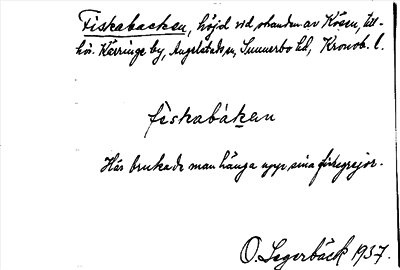 Fiskabacken, höjd vid stranden av Kösen, till-
hör. Kärringe by, Angelstads sn, Sunnerbo hd, Kronob. l.
fiskabáken
Här brukade man hänga upp sina fiskegrejor.
O. Lagerbäck 1937.